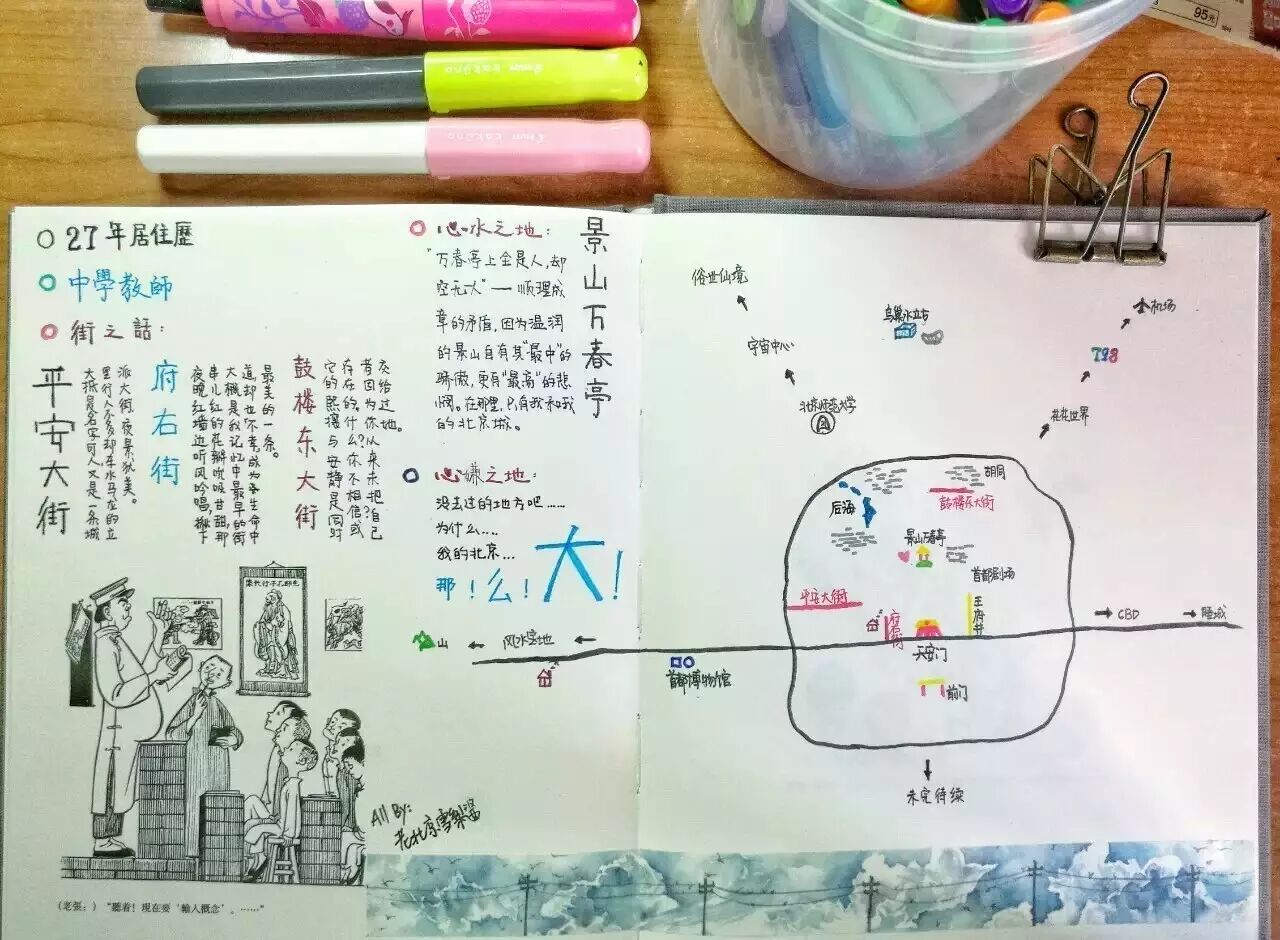 95元
kakuno
kakuno
27年居住歷
中學教師
街之話：
平安大街
大抵是名字可人又是一条城
里行人不多却车水马龙的立
派大街,夜景犹美。
府右街
夜晚红墙边听风吟唱,树下
串儿红的花瓣吮吸甘甜,那
大概是我记忆中最早的街
道,却也不幸,成为生命中
最美的一条。
鼓楼东大街
它的熙攘与安静是同时
存在的。什么?你不相信?或
者因为你从来未把自己
交给过她。
心水之地：
景山万春亭
"万春亭上全是人,却
空无人"——顺理成
章的矛盾,因为温润
的景山自有其"最中"的
骄傲,更有"最高"的悲
悯。在那里,只有我和我
的北京城。
心嫌之地：
没去过的地方吧……
为什么…
我的北京…
那!么!大!
山
风水宝地
首都博物馆
俗世仙境
宇宙中心
北京师范大学
鸟巢水立方
机场
798
花花世界
胡同
后海
鼓楼东大街
景山万春亭
首都剧场
平安大街
府右街
王府井
天安门
前门
CBD
睡城
未完待续
All By:
老北京雪梨酱
(老張：)“聽着！現在要‘輸入概念’。……”